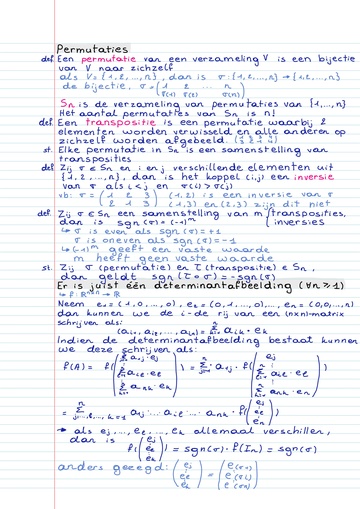 Permutaties
def. Een permutatie van een verzameling V is een bijectie
van V naar zichzelf
als V = {1,2,...,n}, dan is σ: {1,2,...,n} → {1,2,...,n}
de bijectie, σ = ( 1 2 ... n
σ(1) σ(2) σ(n) )
Sn is de verzameling van permutaties van {1,...,n}
Het aantal permutaties van Sn is n!
def. Een transpositie is een permutatie waarbij 2
elementen worden verwisseld en alle anderen op
zichzelf worden afgebeeld.
st. Elke permutatie in Sn is een samenstelling van
transposities
def. Zij σ ∈ Sn en i en j verschillende elementen uit
{1,2,...,n}, dan is het koppel (i,j) een inversie
van σ als i<j en σ(i) > σ(j)
vb: σ = ( 1 2 3 (1,2) is een inversie van σ
2 1 3 ) (1,3) en (2,3) zijn dit niet
def. Zij σ ∈ Sn een samenstelling van m transposities,
dan is sgn(σ) = (-1)^m inversies
↳ σ is even als sgn(σ) = +1
σ is oneven als sgn(σ) = -1
↳ (-1)^m geeft een vaste waarde
m heeft geen vaste waarde
st. Zij σ (permutatie) en τ (transpositie) ∈ Sn,
dan geldt sgn(τ∘σ) = -sgn(σ)
Er is juist één determinantafbeelding (∀n ≥ 1)
↳ f: R^nxn → R
Neem e₁ = (1,0,...,0), e₂ = (0,1,...,0),... en = (0,0,...,n)
dan kunnen we de i-de rij van een (nxn)-matrix
schrijven als:
(ai1, ai2, ..., ain) = Σ aik · ek
Indien de determinantafbeelding bestaat kunnen
we deze schrijven als:
→ als ej, ..., el, ..., ek allemaal verschillen,
dan is
f( ) = sgn(σ) · f(In) = sgn(σ)
anders gezegd: